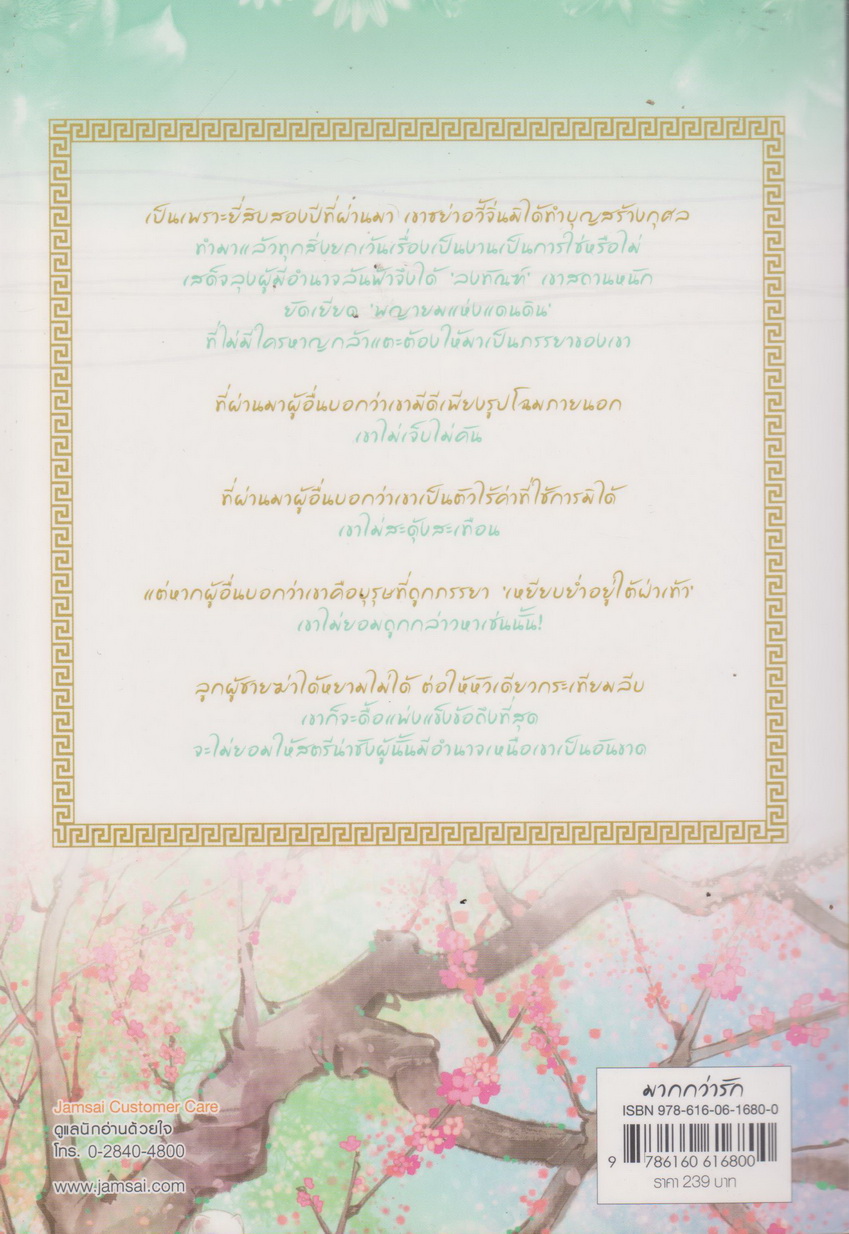 เป็นเพราะยี่สิบสองปีที่ผ่านมา เขาซย่าอวี้จิ่นมิได้ทำบุญสร้างกุศล
ทำมาแล้วทุกสิ่งยกเว้นเรื่องเป็นงานเป็นการใช่หรือไม่
เสด็จลุงผู้มีอำนาจล้นฟ้าจึงได้ 'ลงทัณฑ์' เขาสถานหนัก
ยัดเยียด 'พญายมแห่งแดนดิน'
ที่ไม่มีใครหาญกล้าแตะต้องให้มาเป็นภรรยาของเขา
ที่ผ่านมาผู้อื่นบอกว่าเขามีดีเพียงรูปโฉมภายนอก
เขาไม่เจ็บไม่คัน
ที่ผ่านมาผู้อื่นบอกว่าเขาเป็นตัวไร้ค่าที่ใช้การมิได้
เขาไม่สะดุ้งสะเทือน
แต่หากผู้อื่นบอกว่าเขาคือบุรุษที่ถูกภรรยา 'เหยียบย่ำอยู่ใต้ฝ่าเท้า'
เขาไม่ยอมถูกกล่าวหาเช่นนั้น!
ลูกผู้ชายฆ่าได้หยามไม่ได้ ต่อให้หัวเดียวกระเทียมลีบ
เขาก็จะดื้อแพ่งแข็งข้อถึงที่สุด
จะไม่ยอมให้สตรีน่าชังผู้นั้นมีอำนาจเหนือเขาเป็นอันขาด
Jamsai Customer Care
ดูแลนักอ่านด้วยใจ
โทร. 0-2840-4800
www.jamsai.com
มากกว่ารัก
ISBN 978-616-06-1680-0
9 786160 616800
ราคา 239 บาท